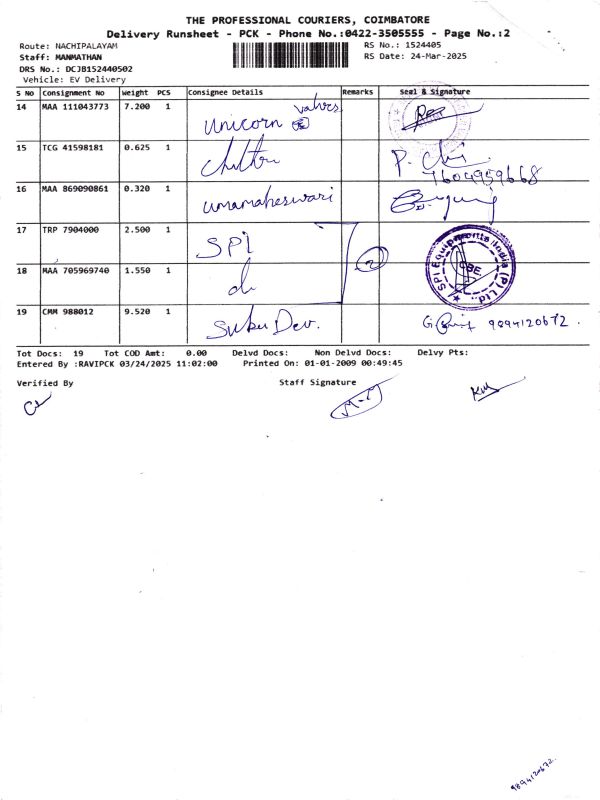 THE PROFESSIONAL COURIERS, COIMBATORE
Delivery Runsheet - PCK - Phone No.:0422-3505555 - Page No.:2
Route: NACHIPALAYAM RS No.: 1524405
Staff: MANMATHAN RS Date: 24-Mar-2025
DRS No.: DCJB152440502
Vehicle: EV Delivery
S No Consignment No Weight PCS Consignee Details Remarks Seal & Signature
14 MAA 111043773 7.200 1 Unicorn valves
15 TCG 41598181 0.625 1 P.
7604959668
16 MAA 869090861 0.320 1 umamaheswari
17 TRP 7904000 2.500 1 SPI 2 SPI Equipments India (P) Ltd. CBE
18 MAA 705969740 1.550 1 do
19 CMM 988012 9.520 1 Suku Dev. 9894120672.
Tot Docs: 19 Tot COD Amt: 0.00 Delvd Docs: Non Delvd Docs: Delvy Pts:
Entered By :RAVIPCK 03/24/2025 11:02:00 Printed On: 01-01-2009 00:49:45
Verified By Staff Signature
9894120672.